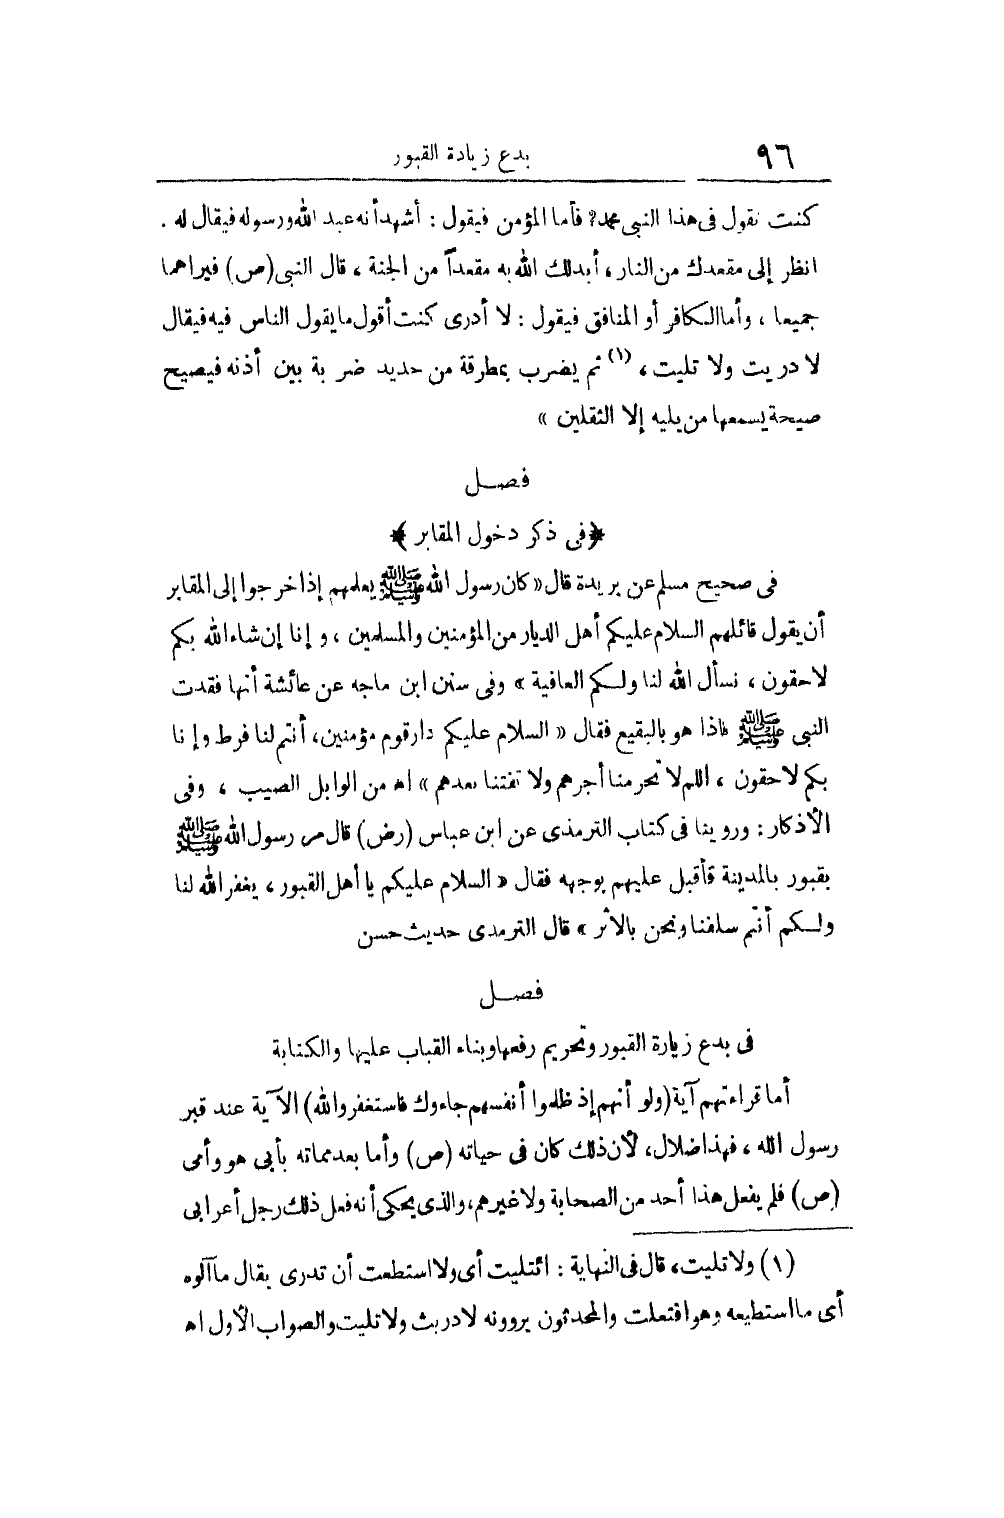 ٩٦ بدع زيادة القبور
كنت تقول فى هذا النبى محمد؟ فأما المؤمن فيقول : أشهد أنه عبد الله ورسوله فيقال له .
انظر إلى مقعدك من النار ، أبدلك الله به مقعداً من الجنة ، قال النبى (ص) فيراهما
جميعا ، وأما الكافر أو المنافق فيقول : لا أدرى كنت أقول ما يقول الناس فيه فيقال
لا دريت ولا تليت ، (١) ثم يضرب بمطرقة من حديد ضربة بين أذنه فيصيح
صيحة يسمعها من يليه إلا الثقلين »
فصل
﴿ فى ذكر دخول المقابر ﴾
فى صحيح مسلم عن بريدة قال « كان رسول الله ﷺ يعلمهم إذا خرجوا إلى المقابر
أن يقول قائلهم السلام عليكم أهل الديار من المؤمنين والمسلمين ، و إنا إن شاء الله بكم
لاحقون ، نسأل الله لنا ولكم العافية » وفى سنن ابن ماجه عن عائشة أنها فقدت
النبى ﷺ فاذا هو بالبقيع فقال « السلام عليكم دار قوم مؤمنين ، أنتم لنا فرط و إنا
بكم لاحقون ، اللهم لا تحرمنا أجرهم ولا تفتنا بعدهم » اه من الوابل الصيب ، وفى
الأذكار : وروينا فى كتاب الترمذى عن ابن عباس (رض) قال مر رسول الله ﷺ
بقبور بالمدينة فأقبل عليهم بوجهه فقال « السلام عليكم يا أهل القبور ، يغفر الله لنا
ولكم أنتم سلفنا ونحن بالأثر » قال الترمدى حديث حسن
فصل
فى بدع زيارة القبور وتحريم رفعها وبناء القباب عليها والكتابة
أما قراءتهم آية (ولو أنهم إذ ظلموا أنفسهم جاءوك فاستغفروا الله) الآية عند قبر
رسول الله ، فهذا ضلال ، لأن ذلك كان فى حياته (ص) وأما بعد مماته بأبى هو وأمى
(ص) فلم يفعل هذا أحد من الصحابة ولا غيرهم ، والذى يحكى أنه فعل ذلك رجل أعرابى
(١) ولا تليت ، قال فى النهاية : ائتليت أى ولا استطعت أن تدرى يقال ما آلوه
أى ما استطيعه وهو افتعلت والمحدثون يروونه لا دريت ولا تليت والصواب الأول اه